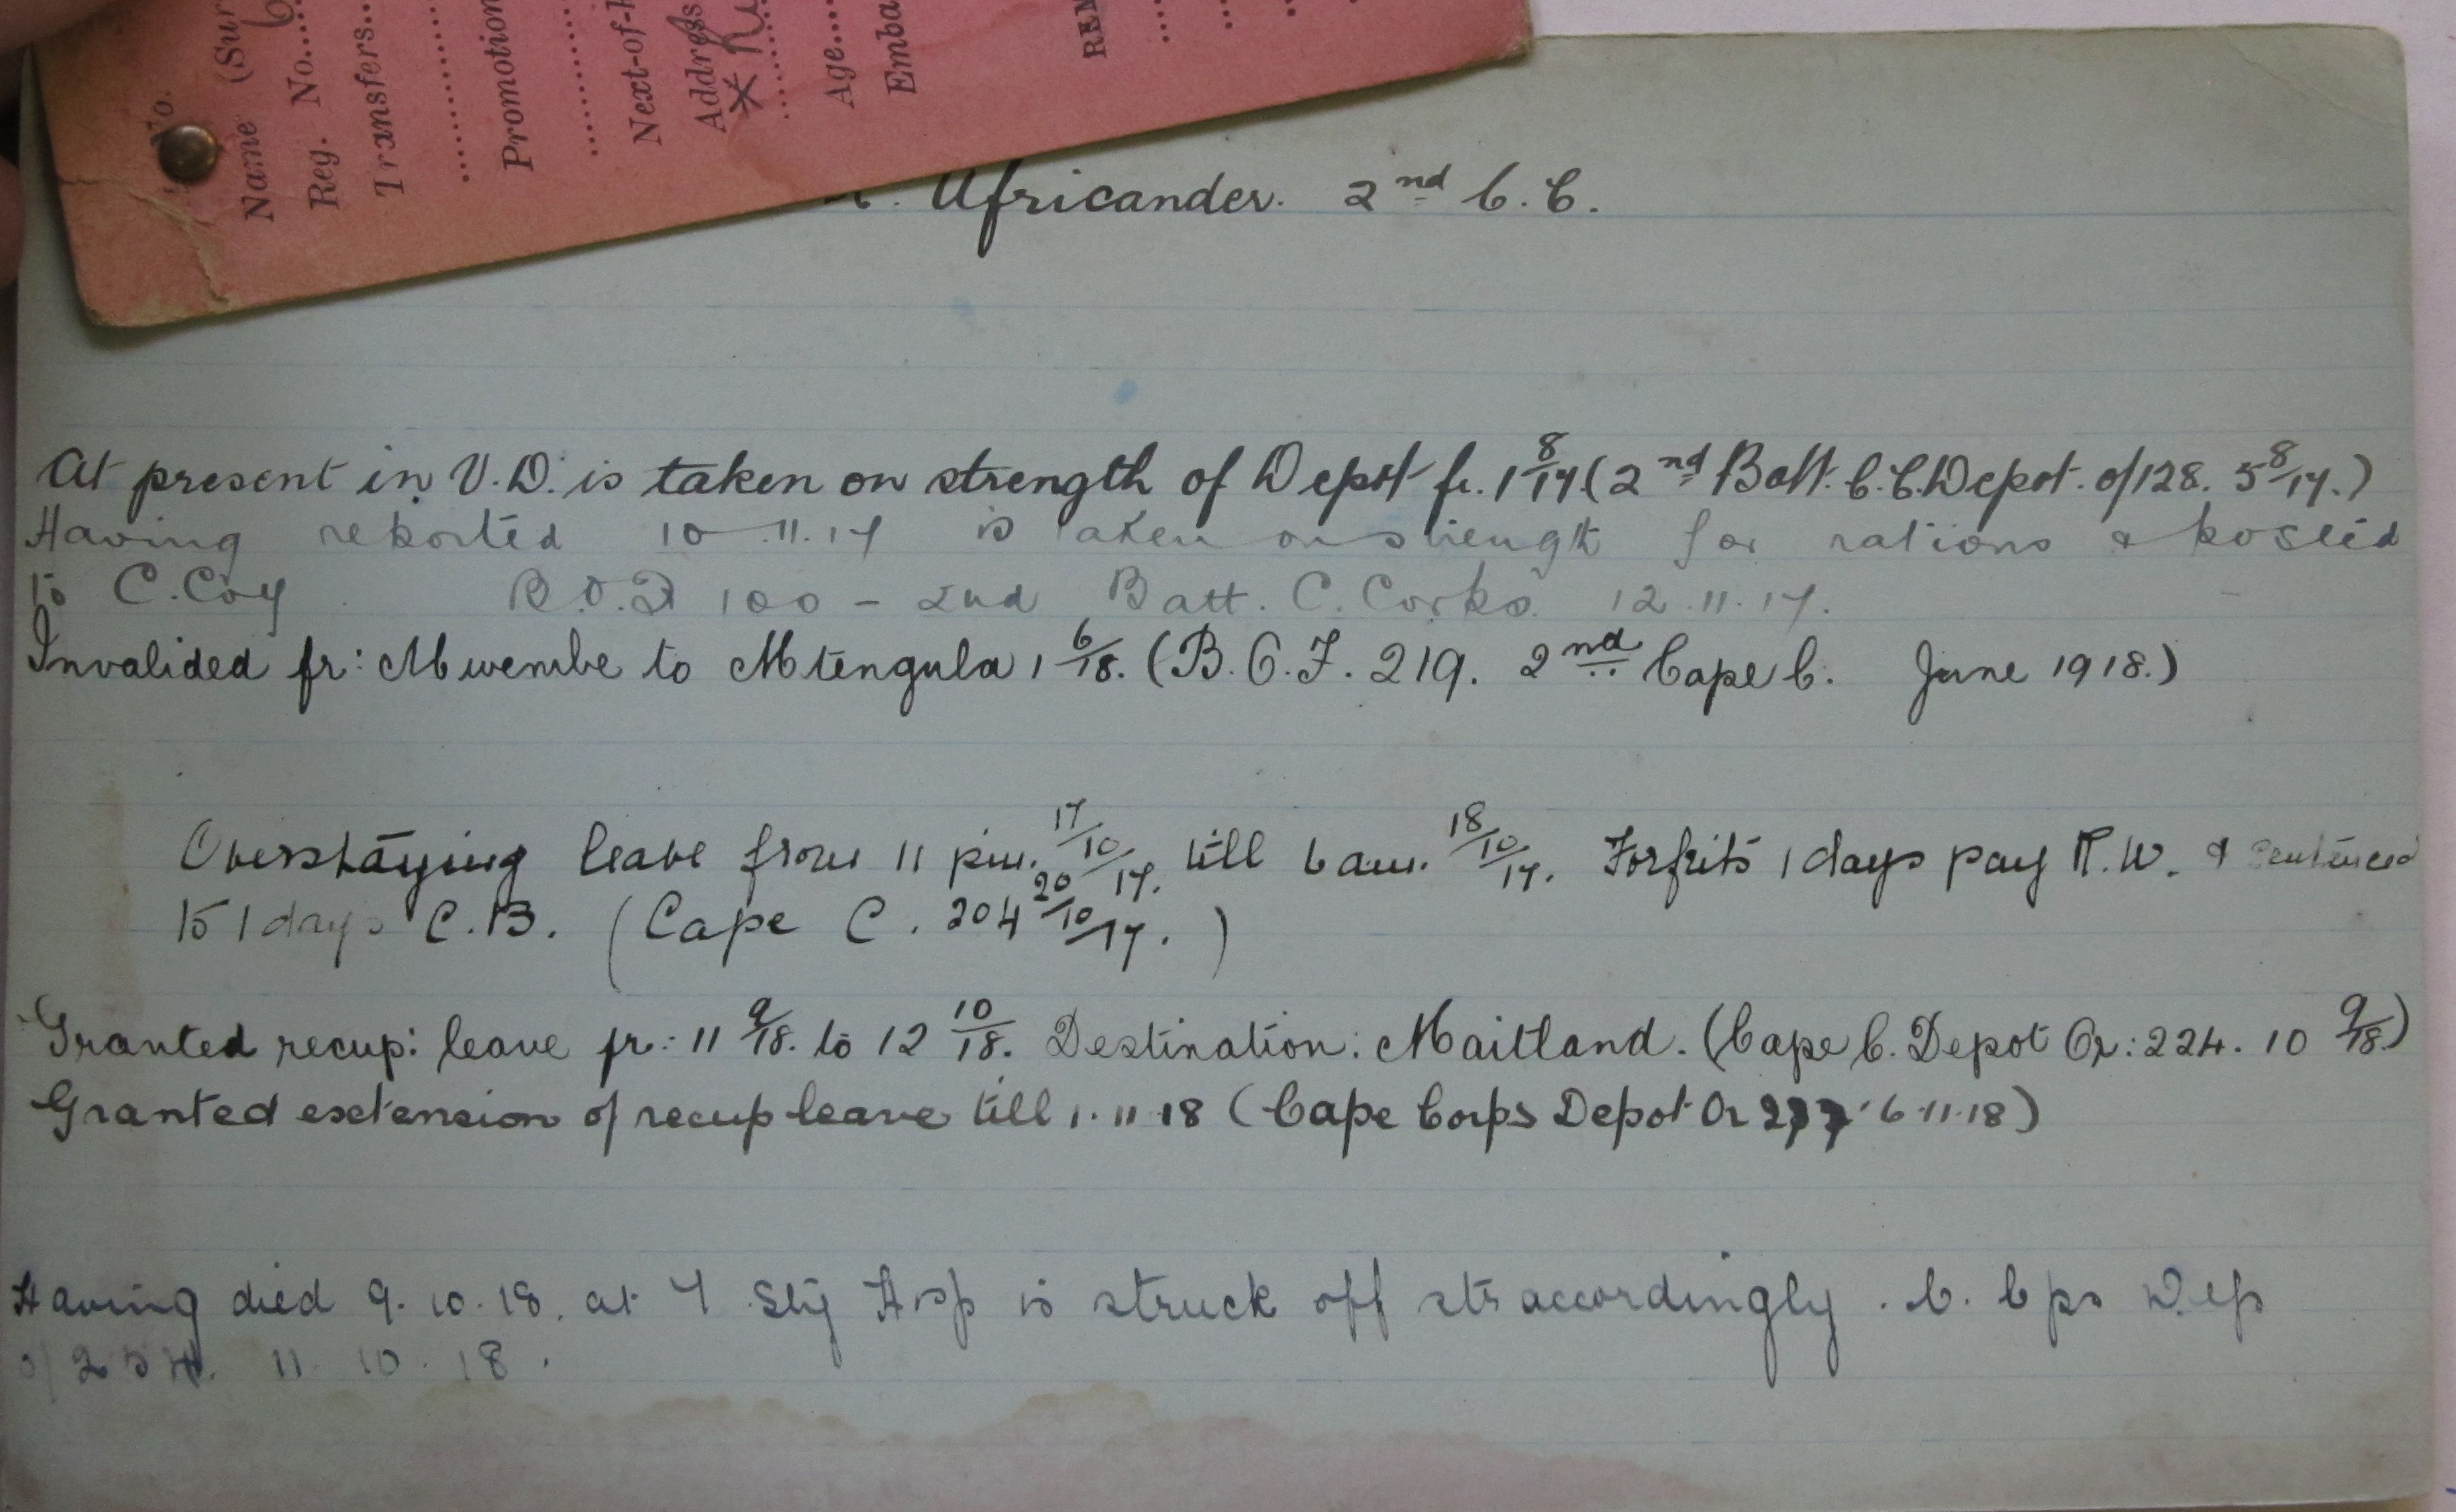 No.
Name (Sur
Reg. No....
Transfers...
Promotion
Next-of-
Address
Age....
Emba
Africander. 2nd C.C.
At present in V.D. is taken on strength of Depot fr. 1 8/17. (2nd Batt. C.C. Depot. o/128. 5 8/17.)
Having reported 10.11.17 is taken on strength for rations & posted
to C.Coy B.O.2 100 - 2nd Batt. C. Corps. 12.11.17.
Invalided fr: Mwembe to Mtengula 1 6/18. (B.O.F. 219. 2nd Cape C. June 1918.)
Overstaying leave from 11 pm. 17/10/17. till 6 am. 18/10/17. Forfeits 1 days pay R.W. & sentenced
to 1 days C.B. (Cape C. 204 20/10/17.)
Granted recup: leave fr: 11 9/18. to 12 10/18. Destination: Maitland. (Cape C. Depot Or: 224. 10 9/18.)
Granted extension of recup leave till 1.11.18 (Cape Corps Depot Or 277. 6.11.18)
Having died 9.10.18. at 7 Sty Hosp is struck off str accordingly. C. Cps Dep
o/254. 11.10.18.